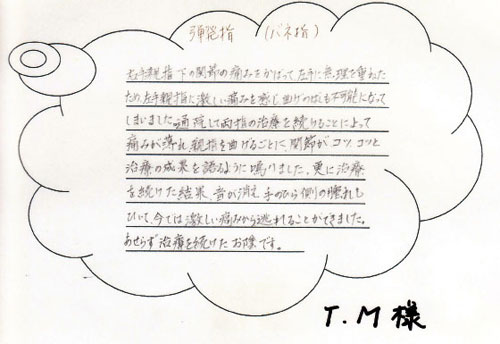 弾発指 (バネ指)
右手親指下の関節の痛みをかばって左手に無理を重ねた
ため、左手親指に激しい痛みを感じ曲げのばしも不可能になって
しまいました。通院して両指の治療を続けることによって
痛みが薄れ、親指を曲げるごとに関節がコツ、コツと
治療の成果を語るように鳴りました。更に治療
を続けた結果、音が消え、手のひら側の腫れも
ひいて、今では激しい痛みから逃れることができました。
あせらず治療を続けたお陰です。
T.M様